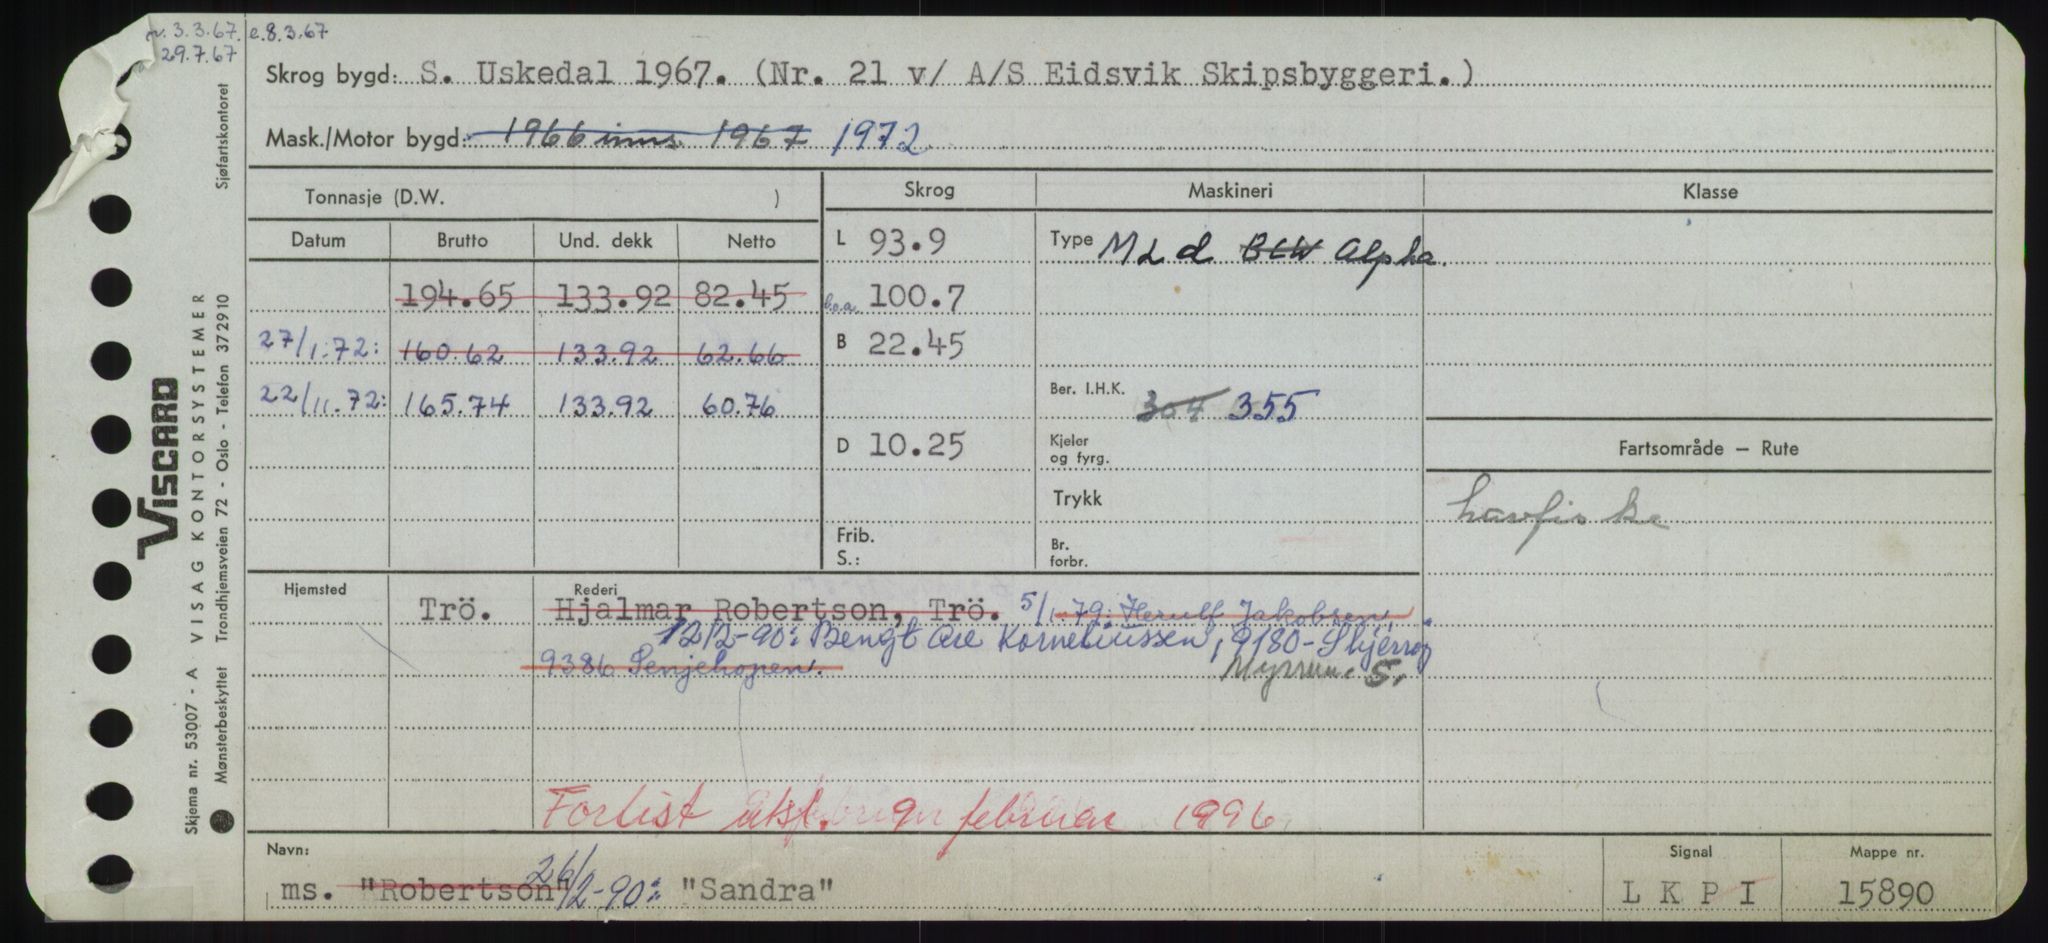 v. 3.3.67. e.8.3.67
29.7.67
Sjøfartskontoret
Skrog bygd: S. Uskedal 1967. (Nr. 21 v/ A/S Eidsvik Skipsbyggeri.)
Mask./Motor bygd: 1966 inns. 1967 1972
Tonnasje (D.W. )
Skrog
Maskineri
Klasse
Datum Brutto Und. dekk Netto
L 93.9
Type M 2 d BLW Alpha.
194.65 133.92 82.45
l.o.a. 100.7
27/1.-72: 160.62 133.92 62.66
B 22.45
22/11.72: 165.74 133.92 60.76
Ber. I.H.K. 304 355
D 10.25
Kjeler og fyrg.
Fartsområde – Rute
Trykk
havfiske
Frib.
S.:
Br. forbr.
Hjemsted Rederi
Trö. Hjalmar Robertson, Trö. 5/1-79: Herulf Jakobsen,
12/2-90: Bengt Are Korneliussen, 9180-Skjervøy
9386 Senjehopen. S.
Forlist februar 1996
Navn:
ms. "Robertson" 26/2-90: "Sandra"
Signal
L K P I
Mappe nr.
15890
VISCARD
VISAG KONTORSYSTEMER
Skjema nr. 53007 - A
Mønsterbeskyttet Trondhjemsveien 72 - Oslo - Telefon 372910